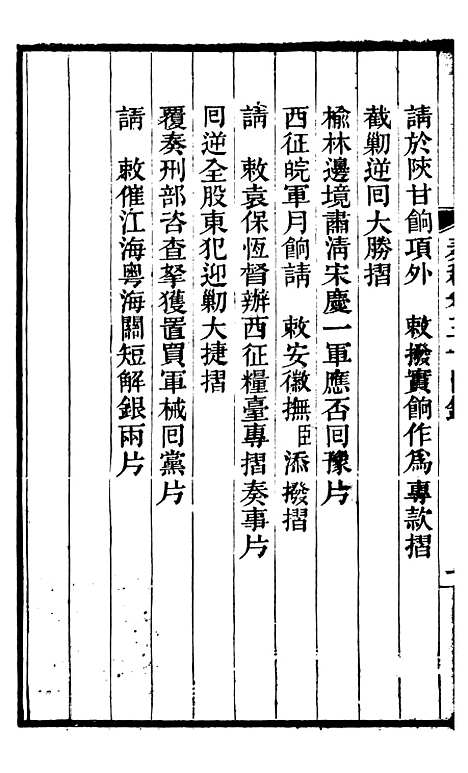 請於陝甘餉項外　敕撥實餉作爲專款摺
截勦逆回大勝摺
榆林邊境肅淸宋慶一軍應否回豫片
西征皖軍月餉請　敕安徽撫臣添撥摺
請　敕袁保恆督辦西征糧臺專摺奏事片
回逆全股東犯迎勦大捷摺
覆奏刑部咨查拏獲置買軍械回黨片
請　敕催江海粵海關短解銀兩片